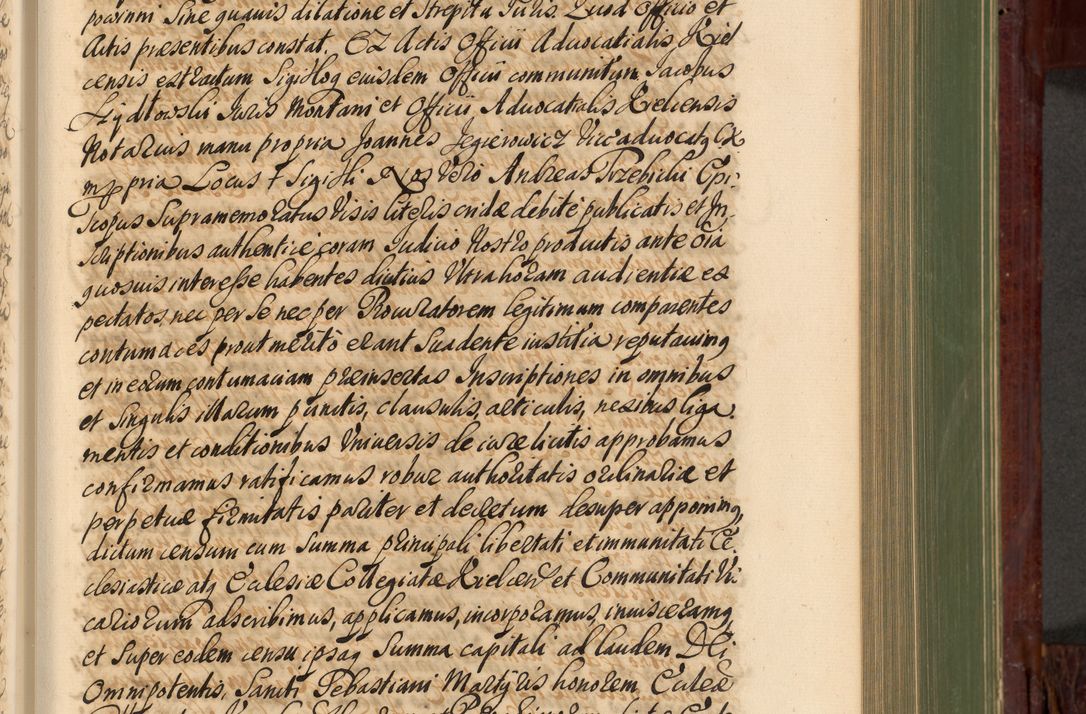 powinni Sine quauis dilatione et Strepitu Juris. Quod Officio et
Actis præsentibus constat. Ex Actis Officii Aduocatialis Kiel
censis extractum Sigilloq eiusdem Officii communitum Jacobus
Juris Montani et Officii Aduocatialis Kielcensis
Notarius manu propria Joannes Jegierowicz Viceaduocatq Ex
mpp pria Locus † Sigilli Nos Vero Andreas Trzebicki Epi:
scopus Supramemoratus Visis literis cridæ debite publicatis et In
scriptionibus authentice coram Judicio Nostro productis ante oia
quosuis interesse habentes diutius Vltra horam audientiæ ex
pectatos, nec per Se nec per Procuratorem legitimum comparentes
contumaces prout merito erant Suadente iustitia reputauimq
et in eorum contumaciam præinsertas Inscriptiones in omnibus
et Singulis illarum punctis, clausulis, articulis, nexibus liga:
mentis et conditionibus Vniuersis de iure licitis approbamus
confirmamus ratificamus robur authoritatis ordinariæ et
perpetuæ firmitatis pariter et decretum desuper apponimq,
dictum censum cum Summa principali libertati et immunitati Ec:
clesiasticæ atq Ecclesiæ Collegiatæ Kielcen et Communitati Vi:
cariorum adscribimus, applicamus, incorporamus, inuisceramq,
et Super eodem censu ipsaq Summa capitali ad laudem DEi
Omnipotentis, Sancti Sebastiani Martyris honorem, Ecclæ